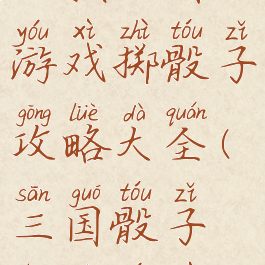 yóu xì zhì tóu zǐ
游戏掷骰子
gōng lüè dà quán
攻略大全(
sān guó tóu zǐ
三国骰子